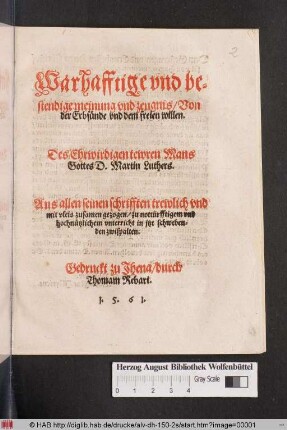 2
Warhafftige vnd be-
stendige meinung vnd zeugnis / Von
der Erbsünde vnd dem freien willen.
Des Ehrwirdigen tewren Mans
Gottes D. Martin Luthers.
Aus allen seinen schrifften trewlich vnd
mit vleis zusamen gezogen / zu notturfftigem vnd
hochnützlichem vnterricht in itz schweben-
den zwispalten.
Gedruckt zu Jhena / durch
Thomam Rebart.
1. 5. 6 1.
Herzog August Bibliothek Wolfenbüttel
0 1 2 3 4
Gray Scale
© HAB http://diglib.hab.de/drucke/alv-dh-150-2s/start.htm?image=00001